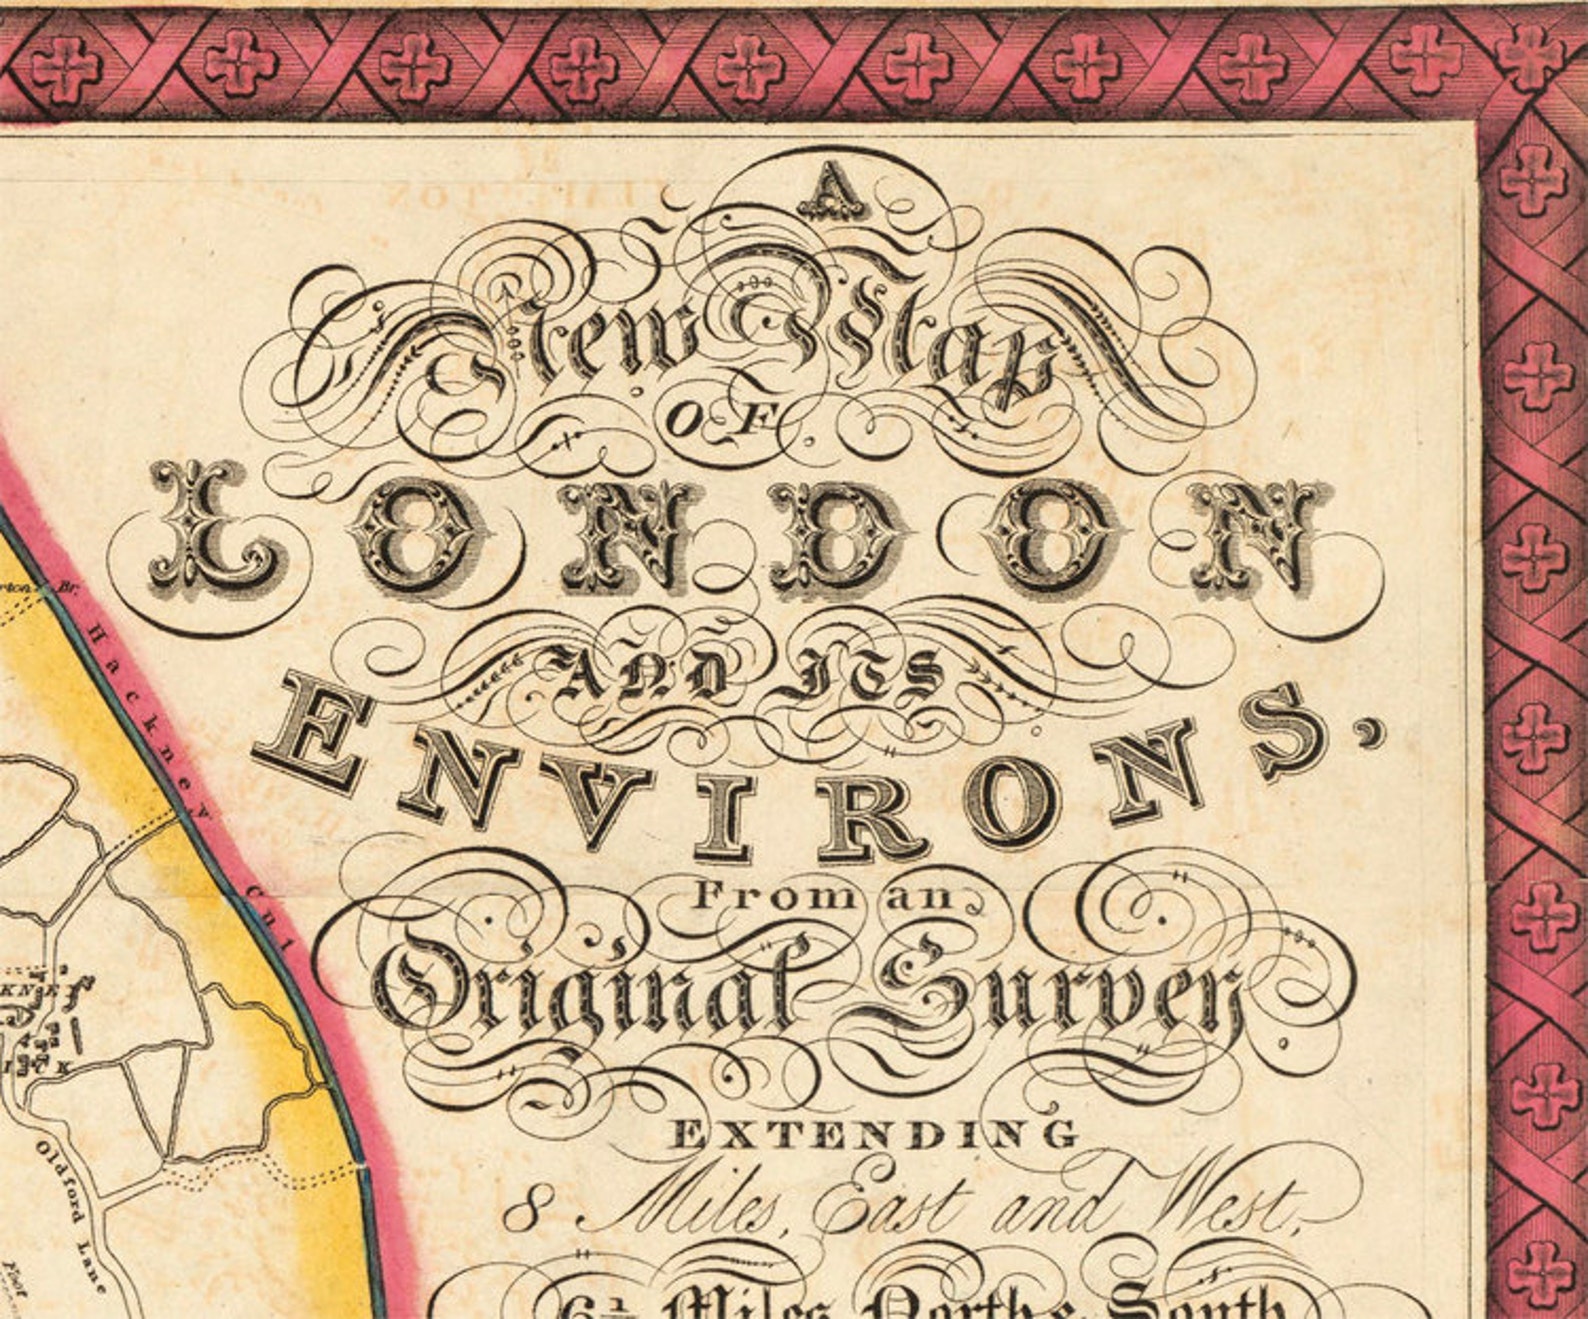 A
New Map
OF
LONDON
AND ITS
ENVIRONS,
From an
Original Survey
EXTENDING
8 Miles, East and West,
6½ Miles North & South
Br.
Hackney
Cnl
Oldford Lane